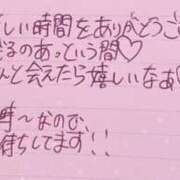 しい時間をありがとうご
るのあっという間♡
んと会えたら嬉しいなあ♡
時～なので
待ちしてます!!